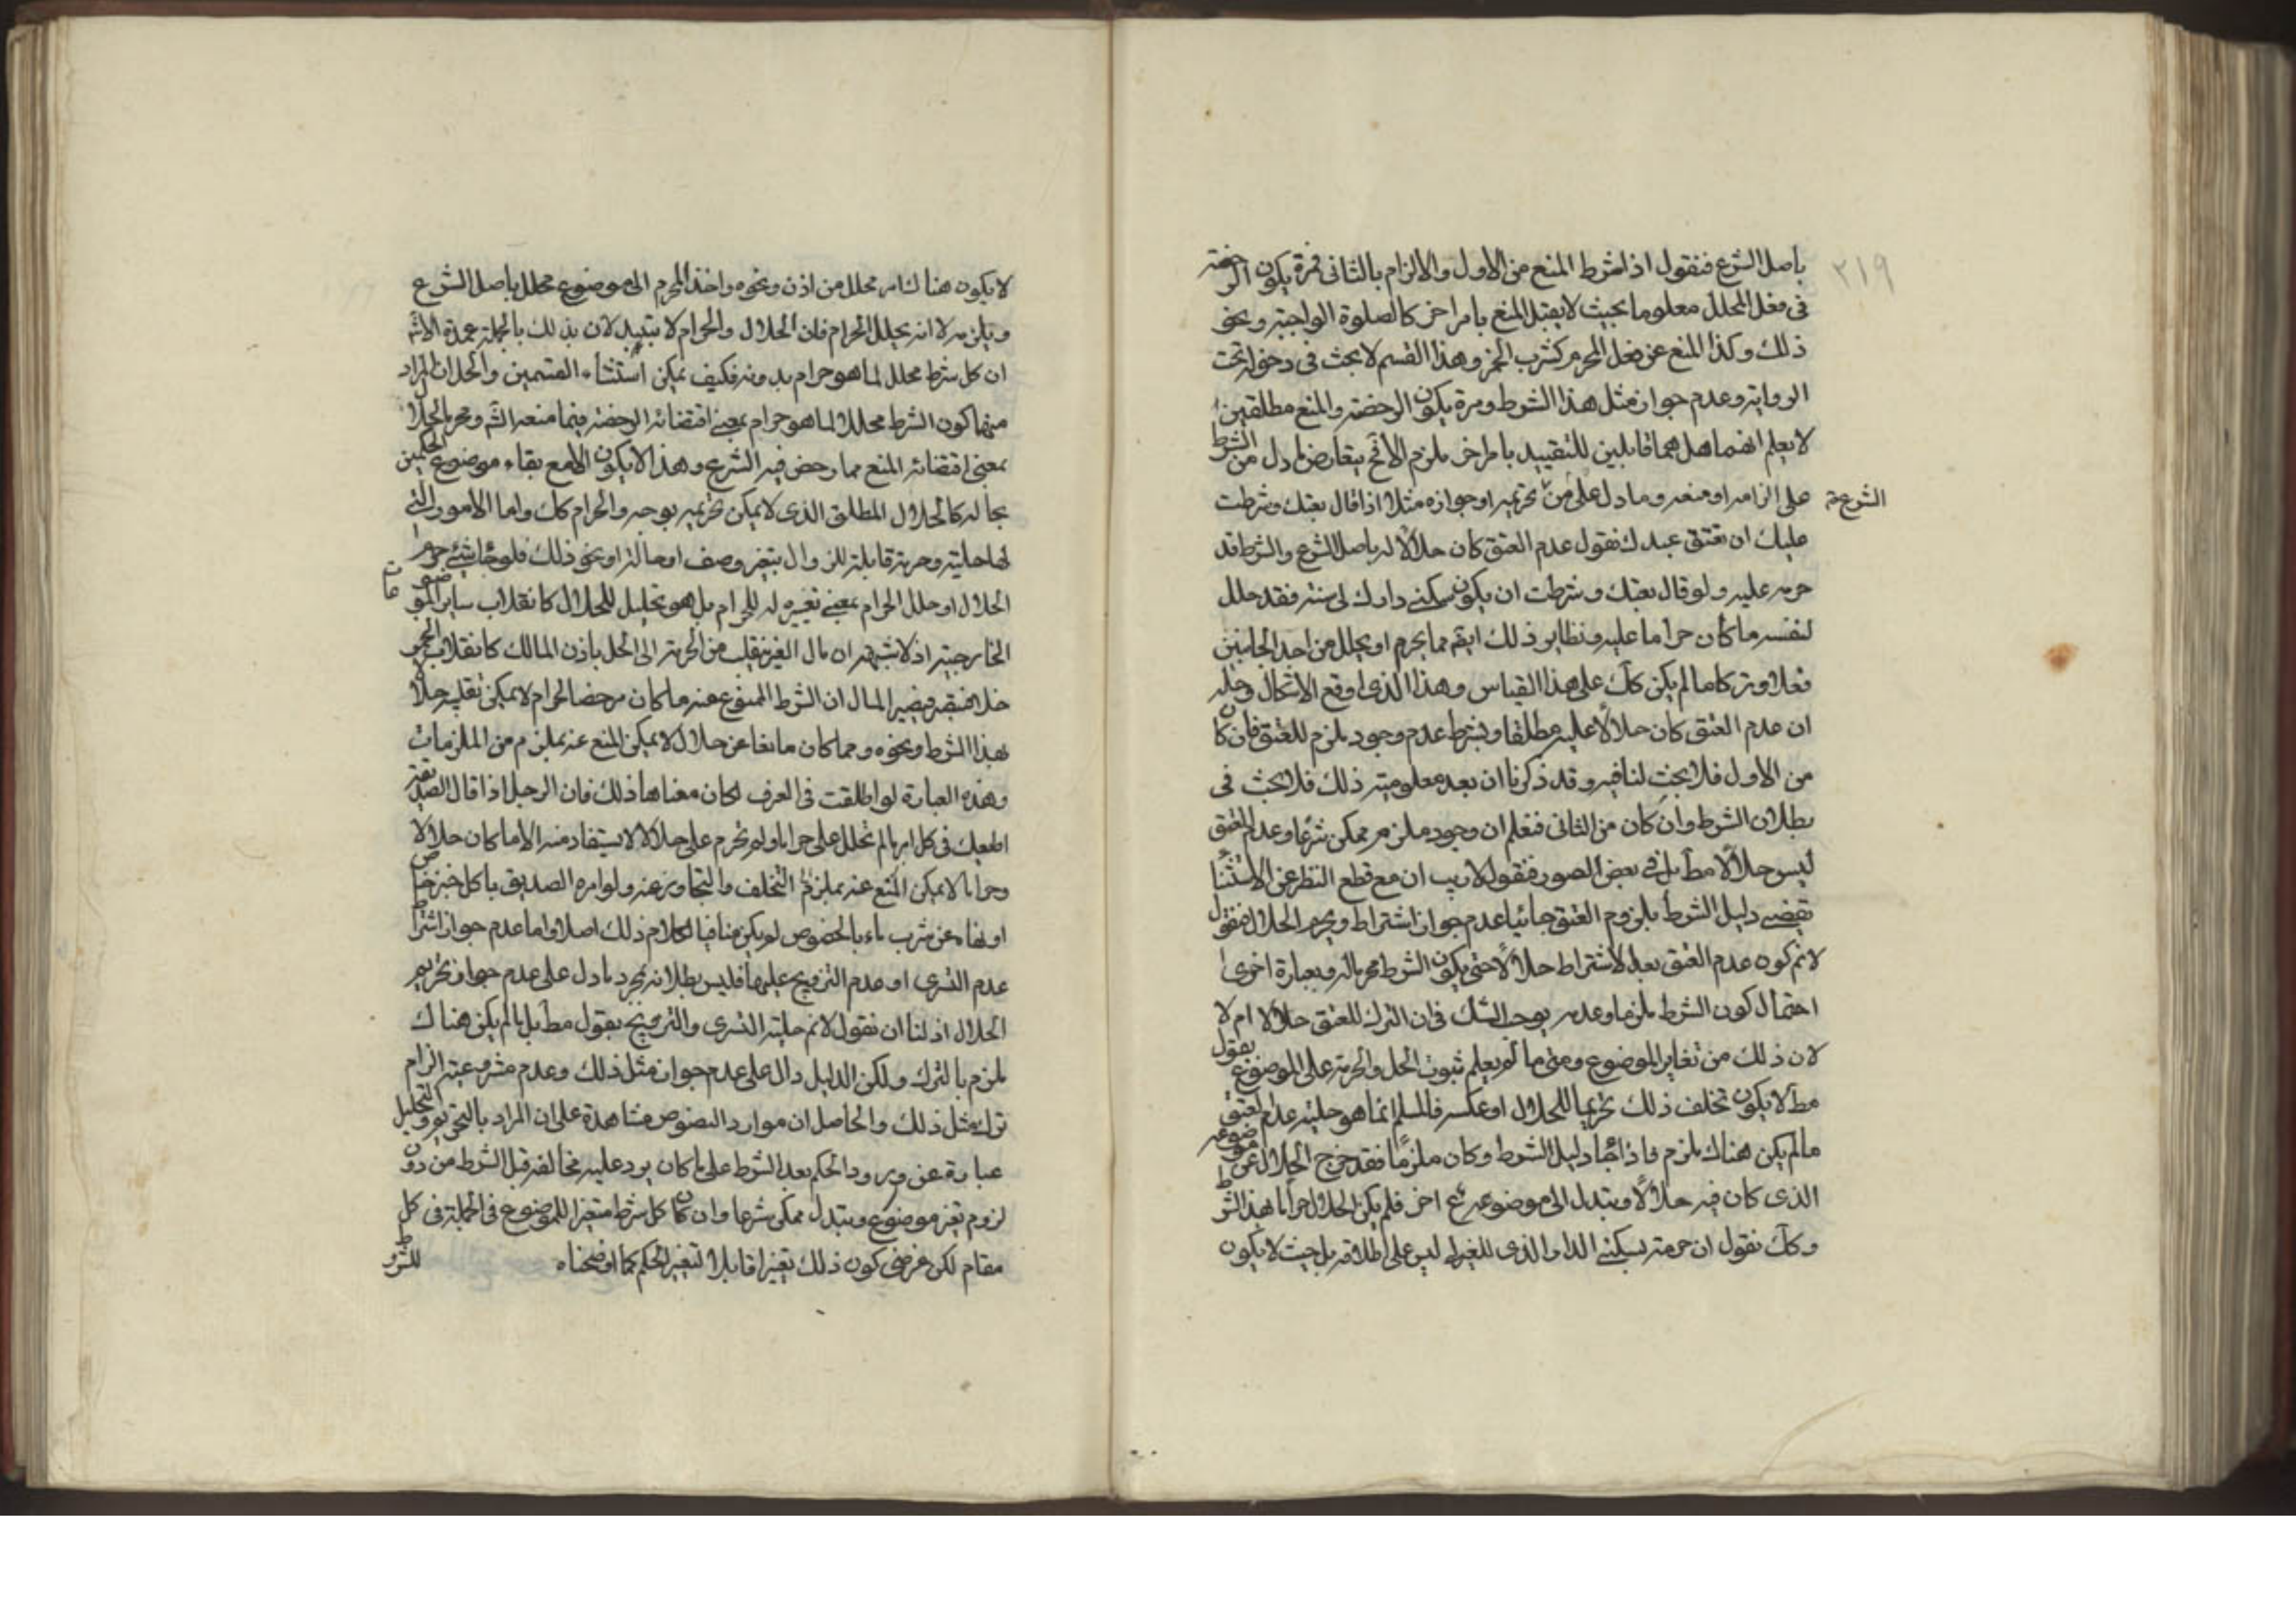 ٢١٩
باصل الشرع فنقول اذا شرط المنع من الاول والالزام بالثانى فمرة يكون الرخصة
فى فعل المحلل معلوما بحيث لا يقبل المنع بامر اخر كالصلوة الواجبة ونحو
ذلك وكذا المنع عن فعل المحرم كشرب الخمر وهذا القسم لا بحث فى دخوله تحت
الرواية وعدم جواز مثل هذا الشرط ومرة يكون الرخصة والمنع مطلقين
لا يعلم انهما هل هما قابلين للتقييد بامر اخر ملزم الاقح يتعارض ما دل من الشرط
على الزامه او منعه وما دل على من تحريمه او جوازه مثلا اذا قال بعتك وشرطت
الشرع
عليك ان تعتق عبدك نقول عدم العتق كان حلالا له باصل الشرع والشرط قد
حرمه عليه ولو قال بعتك وشرطت ان يكون سكنى دارك لى سنة فقد حلل
لنفسه ما كان حراما عليه ونظاير ذلك ايضم مما يحرم او يحلل من احد الجانبين
فعلا وتركا ما لم يكن كك على هذا القياس وهذا الذى اوقع الاشكال وحله
ان عدم العتق كان حلالا عليه مطلقا او بشرط عدم وجود ملزم للعتق فان كان
من الاول فلا بحث لنا فيه وقد ذكرنا ان بعد معلومية ذلك فلا بحث فى
بطلان الشرط وان كان من الثانى فنعلم ان وجود ملزم ممكن شرعا وعدم العتق
ليس حلالا مط بل فى بعض الصور فنقول لا ريب ان مع قطع النظر عن الاستثناء
يقضى دليل الشرط بلزوم العتق جائيا عدم جواز اشتراط ويحرم الحلال فنقول
لا نم كون عدم العتق بعد الاشتراط حلالا حتى يكون الشرط محرما له وبعبارة اخرى
احتمال كون الشرط ملزما وعدمه يوجب الشك فى ان الترك للعتق حلالا ام لا
لان ذلك من تغاير الموضوع ومتى ما لم يعلم ثبوت الحل والحرمة على الموضوع بقول
مط لا يكون تخلف ذلك تحريما للحلال او عكسه فالمسلم انما هو حلية عدم العتق
ما لم يكن هناك ملزم فاذا جاء دليل الشرط وكان ملزما فقد خرج الحلال عن موضوعه
الذى كان فيه حلالا وتبدل الى موضوع اخر فلم يكن الحلال حراما بهذا الشرط
وكك نقول ان حرمة سكنى الدار الذى للغير ليس على اطلاقه بل حيث لا يكون
لا يكون هناك امر محلل من اذن ونحوه واخذ المحرم الى موضوع محلل باصل الشرع
ويلزمه لا انه يحلل الحرام فان الحلال والحرام لا يتبدلان بذلك بالجملة عمدة الاشكال
ان كل شرط محلل لما هو حرام بدونه فكيف يمكن استثناء القسمين والحل ان المراد
منهما كون الشرط محللا لما هو حرام بمعنى اقتضائه الرخصة فيما منعه الشم ومحرما للحلال
بمعنى اقتضائه المنع مما رخص فيه الشرع وهذا لا يكون الا مع بقاء موضوع الحكمين
بحاله كالحلال المطلق الذى لا يمكن تحريمه بوجه والحرام كك واما الامور التى
لها حلية وحرمة قابلة للزوال بتغير وصف او حالة او نحو ذلك فلو جاء شئ حرم
الحلال او حلل الحرام بمعنى تغييره له للحرام بل هو تحليل للحلال كانقلاب ساير الموضوعات
الخارجية اذ لا شبهة ان مال الغير ينقلب من الحرمة الى الحل باذن المالك كانقلاب الخمر
خلا فتبصر فيصير المال ان الشرط الممنوع عنه ما كان مرخصا لحرام لا يمكن تقلبه حلالا
بهذا الشرط ونحوه وما كان مانعا عن حلال لا يمكن المنع عنه بملزم من الملزمات
وهذه العبارة لو اطلقت فى العرف لكان معناها ذلك فان الرجل اذا قال لصديقه
اطعك فى كل امر ما لم تحلل على حراما ولم تحرم على حلالا لا يستفاد منه الا ما كان حلالا
وحراما لا يمكن المنع عنه بملزم التخلف والتجاوز عنه ولو امره الصديق باكل خبز خاص
او نهاه عن شرب ماء بالخصوص لم يكن منافيا لكلام ذلك اصلا واما عدم جواز اشتراط
عدم التسرى او عدم التزويج عليها فليس بطلانه بمجرد ما دل على عدم جواز تحريم
الحلال اذ لنا ان نقول لا نم حلية التسرى والتزويج بقول مط بل ما لم يكن هناك
ملزم بالترك ولكن الدليل دال على عدم جواز مثل ذلك وعدم مشروعية الزام
ترك مثل ذلك والحاصل ان موارد النصوص مشاهدة على ان المراد بالتحريم والتحليل
عبارة عن ورود الحكم بعد الشرط على ما كان يرد عليه مخالفه قبل الشرط من دون
لزوم تغير موضوع وتبدل ممكن شرعا وان كان كل شرط متغيرا للموضوع فى الجملة فى كل
مقام لكن غرضى كون ذلك تغيرا قابلا لتغير الحكم كما اوضحناه
للشرط